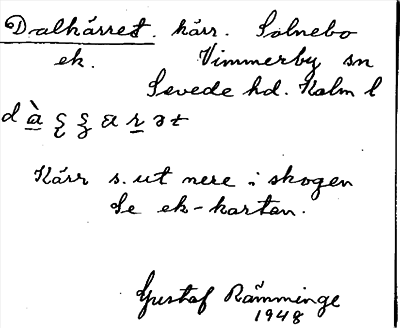 Dalkärret. kärr. Solnebo
ek. Vimmerby sn
Sevede hd. Kalm l
Kärr s. ut nere i skogen
Se ek-kartan.
Gustaf Ramminge
1948